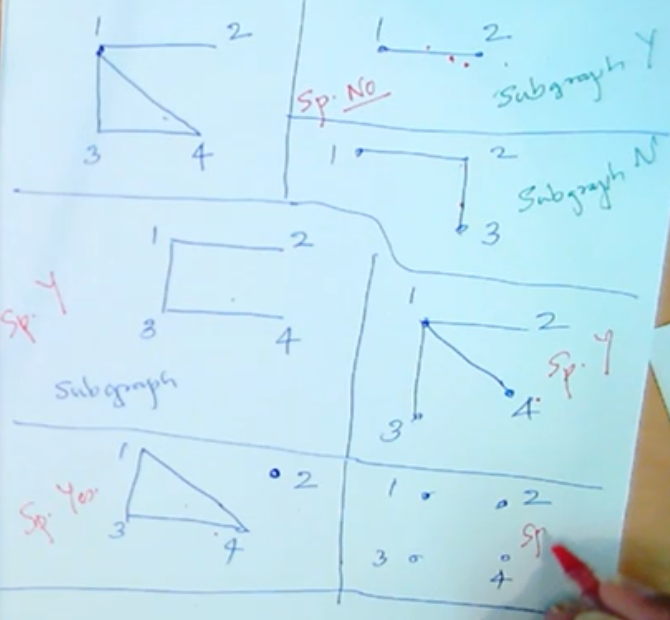 1 2
3 4
1 2
Sp. No
Subgraph Y
1 2
3
Subgraph N
1 2
3 4
Sp. Y
Subgraph
1 2
3 4
Sp. Y
1 2
3 4
Sp. Yes
1 2
Sp
3 4